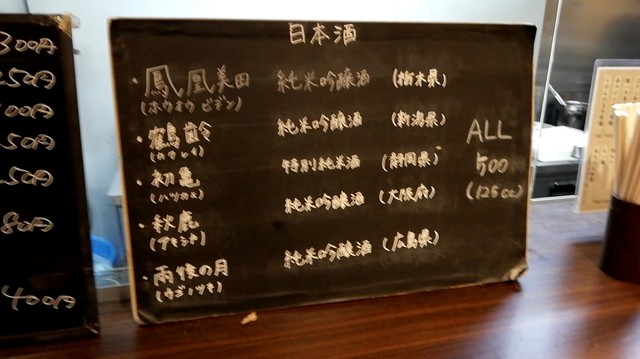 300円
250円
100円
50円
50円
80円
400円
日本酒
・鳳凰美田 純米吟醸酒 (栃木県)
(ホウオウ ビデン)
・鶴齢 純米吟醸酒 (新潟県)
(カクレイ)
・初亀 特別純米酒 (静岡県)
(ハツカメ)
・秋鹿 純米吟醸酒 (大阪府)
(アキシカ)
・雨後の月 純米吟醸酒 (広島県)
(ウゴノツキ)
ALL
500
(125cc)